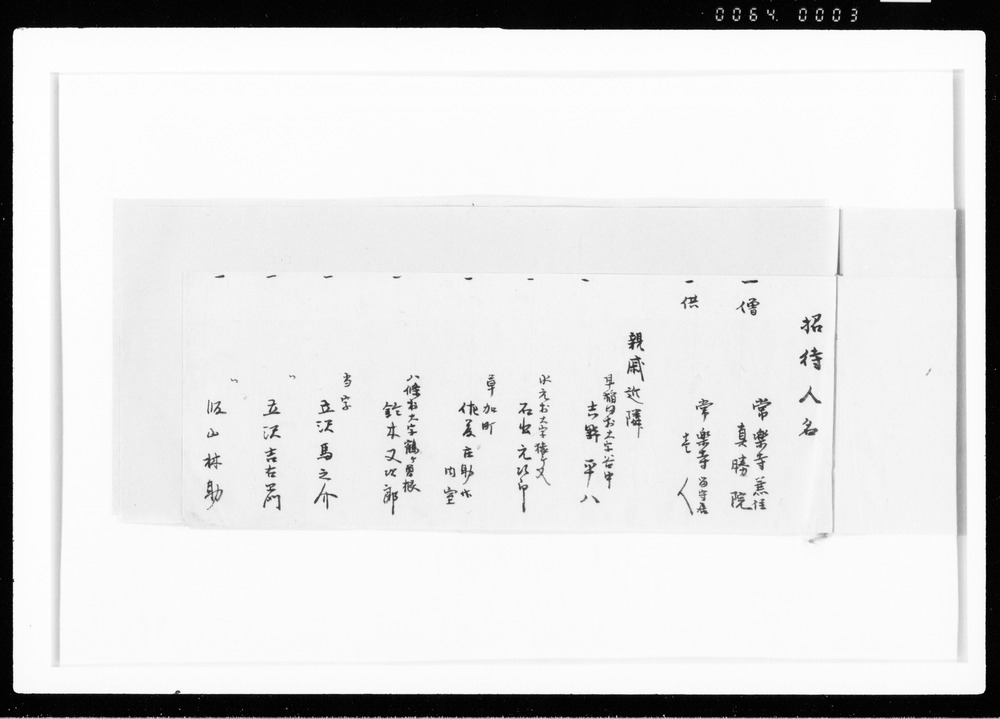 0064 0003
招待人名
一 僧 常楽寺兼住
真勝院
一 供 常楽寺留守居
壱人
親戚近隣
一 早稲田村大字谷中
吉野平八
一 水元村大字猿ヶ又
石出元次郎
一 草加町
佐藤庄助
内室
一 八條村大字鶴ヶ曽根
鈴木又次郎
一 当字
五沢馬之介
一 〃
五沢吉右衛門
一 〃
山林助